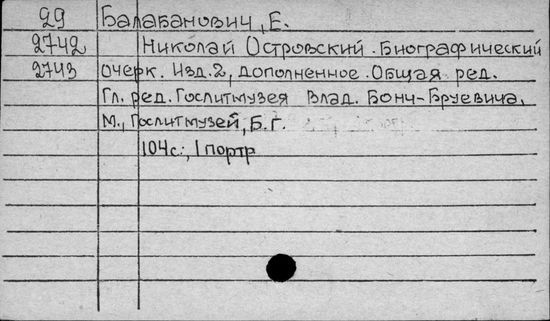 29 Балабанович, Е.
2742 Николай Островский. Биографический
2743 очерк. Изд. 2, дополненное. Общая ред.
Гл. ред. Гослитмузея Влад. Бонч-Бруевича.
М., Гослитмузей, Б.г.
104 с., 1 портр